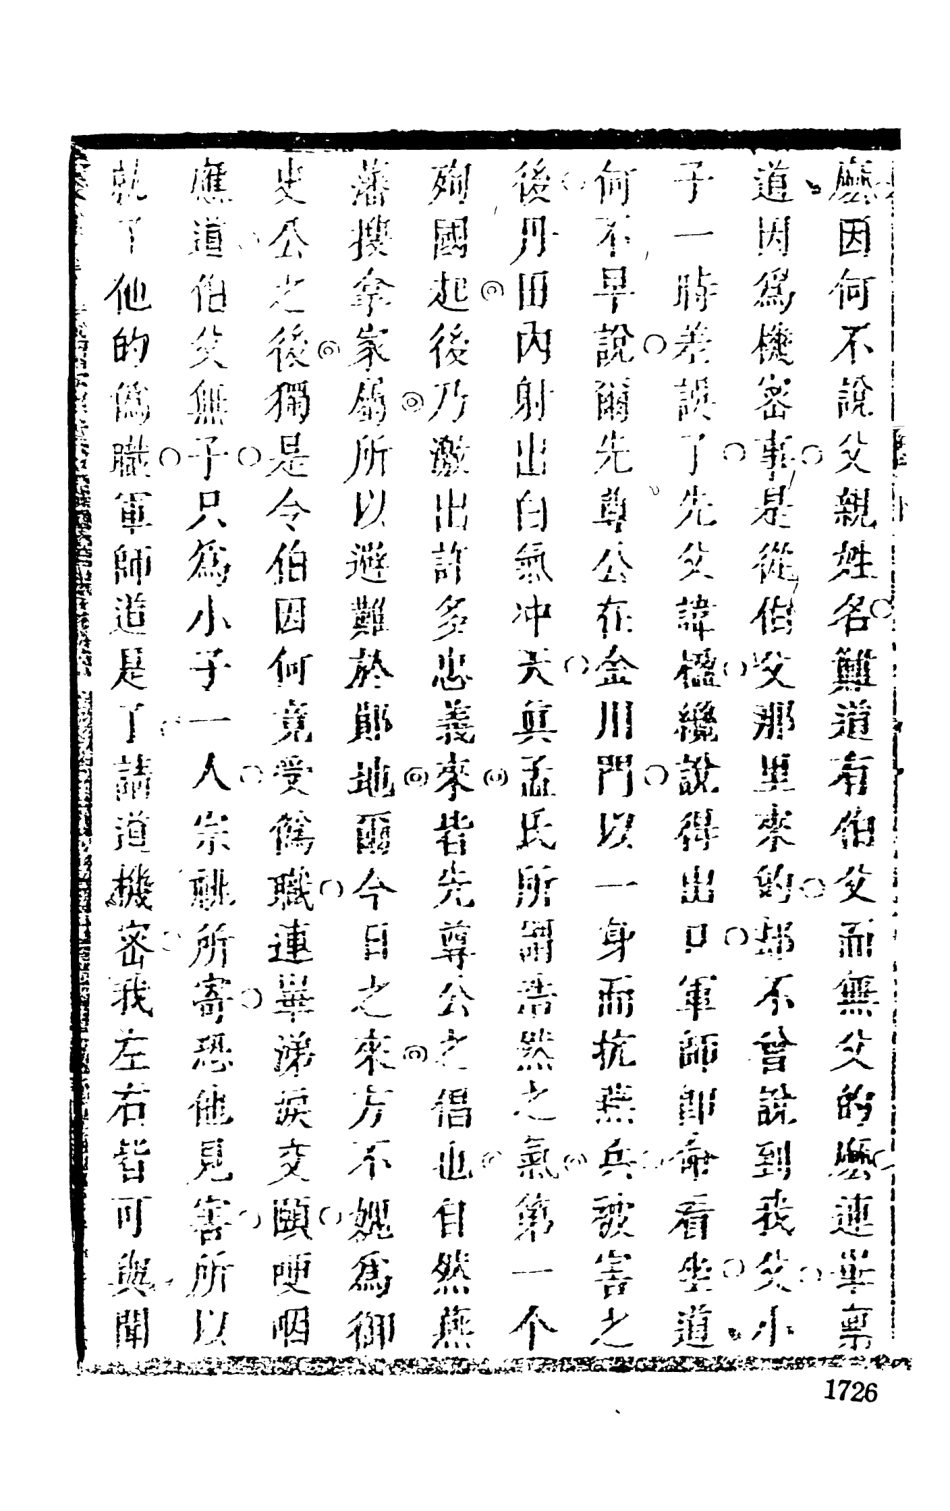 麽因何不說父親姓名難道有伯父而無父的麽連華稟
道因爲機密事是從伯父那里來的却不曾說到我父小
子一時差誤了先父諱楹纔說得出口軍師卽命看坐道
何不早說爾先尊公在金川門以一身而抗燕兵被害之
後丹田內射出白氣冲天眞孟氏所謂浩然之氣第一个
殉國起後乃激出許多忠義來皆先尊公之倡也自然燕
藩搜拿家屬所以避難於鄖地爾今日之來方不媿爲御
史公之後獨是令伯因何竟受僞職連華涕淚交頤哽咽
應道伯父無子只爲小子一人宗祧所寄恐他見害所以
就了他的僞職軍師道是了請道機密我左右皆可與聞
1726